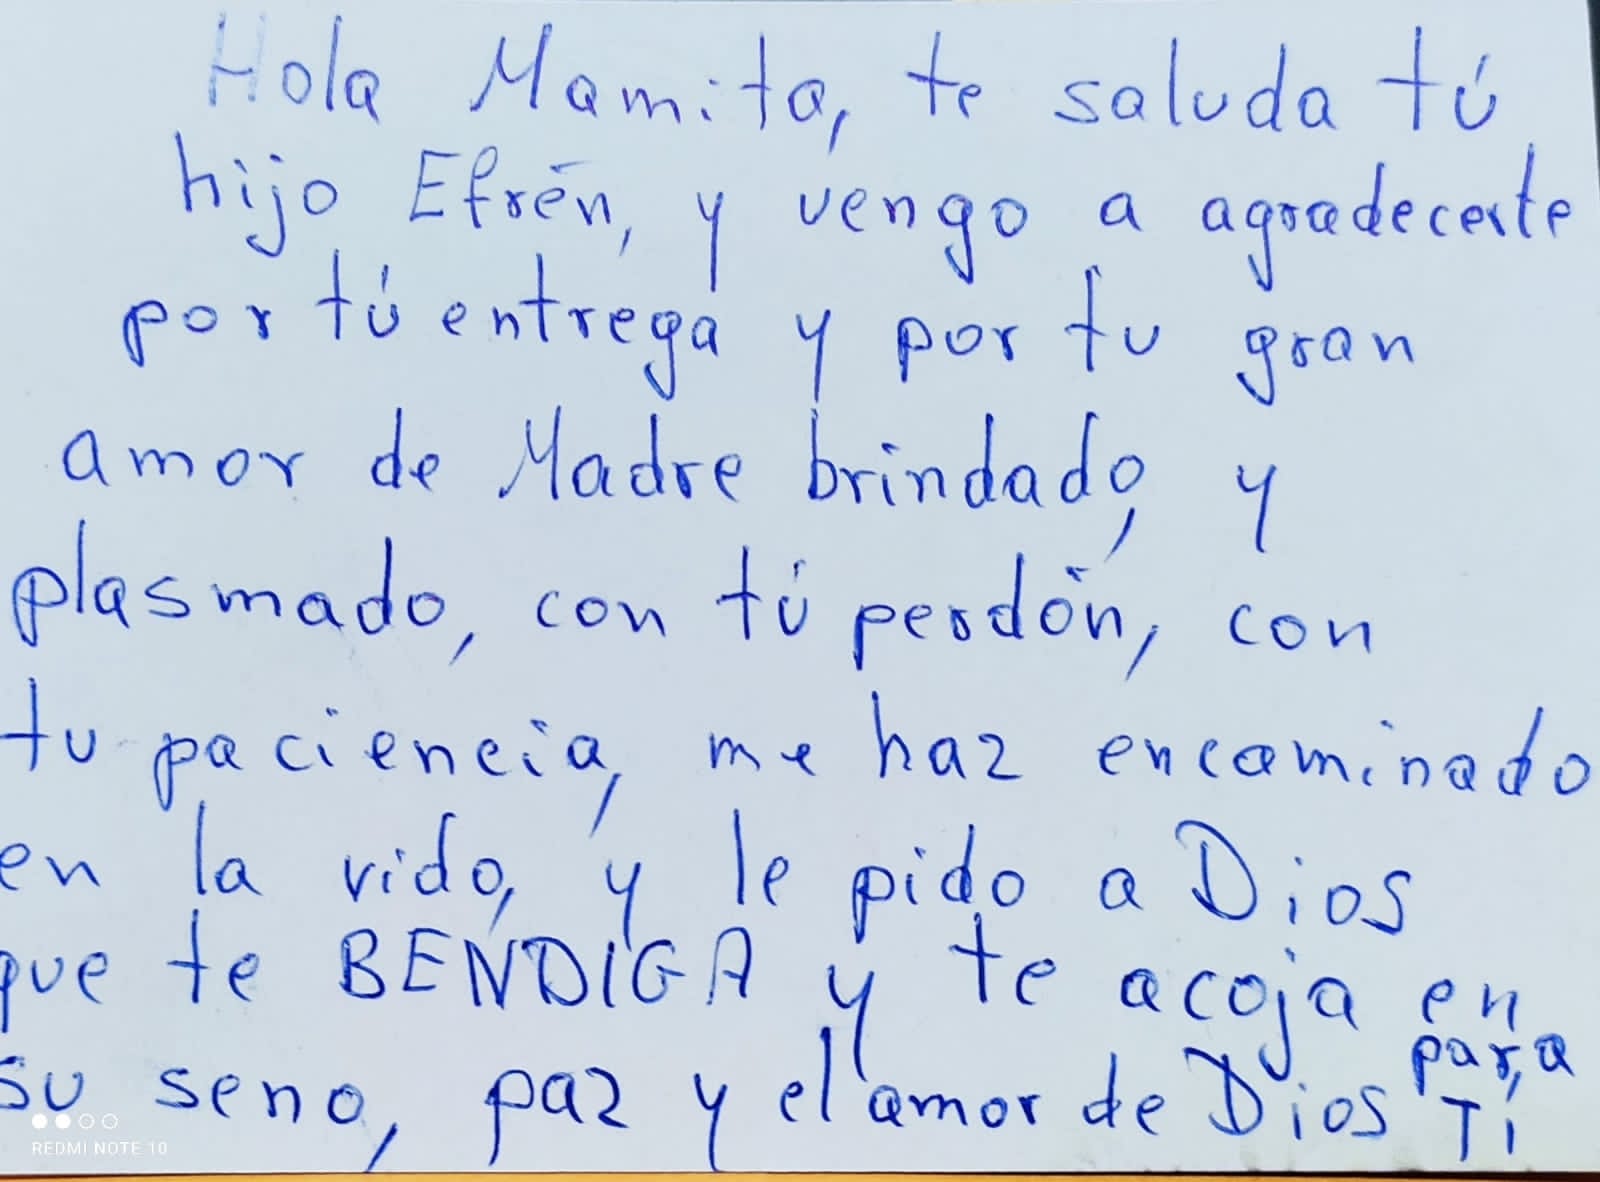 Hola Mamita, te saluda tú
hijo Efrén, y vengo a agradecerte
por tú entrega y por tu gran
amor de Madre brindado, y
plasmado, con tú perdón, con
tu paciencia, me haz encaminado
en la vida, y le pido a Dios
que te BENDIGA y te acoja en
su seno, paz y el amor de Dios para
Tí
REDMI NOTE 10